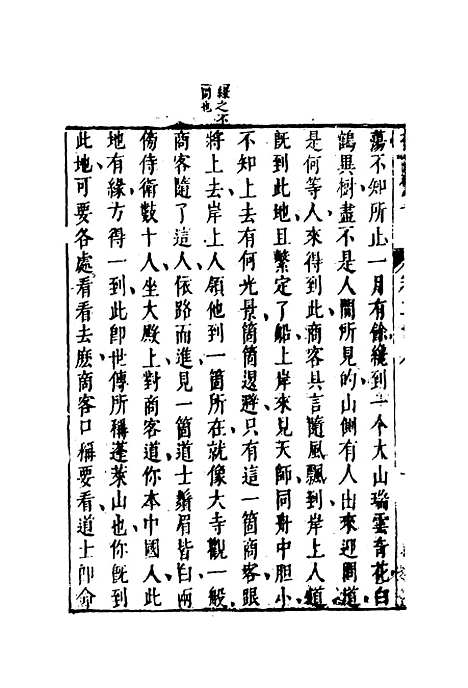 緩之不
同也
蕩不知所止一月有餘纔到一个大山瑞雲奇花白
鶴異樹盡不是人間所見的山側有人出來迎問道
是何等人來得到此商客具言隨風飄到岸上人道
旣到此地且繫定了船上岸來見天師同舟中胆小
不知上去有何光景箇箇退避只有這一箇商客跟
將上去岸上人領他到一箇所在就像大寺觀一般
商客隨了這人依路而進見一箇道士鬚眉皆白兩
傍侍衛數十人坐大殿上對商客道你本中國人此
地有緣方得一到此卽世傳所稱蓬萊山也你旣到
此地可要各處看看去麽商客口稱要看道士卽命